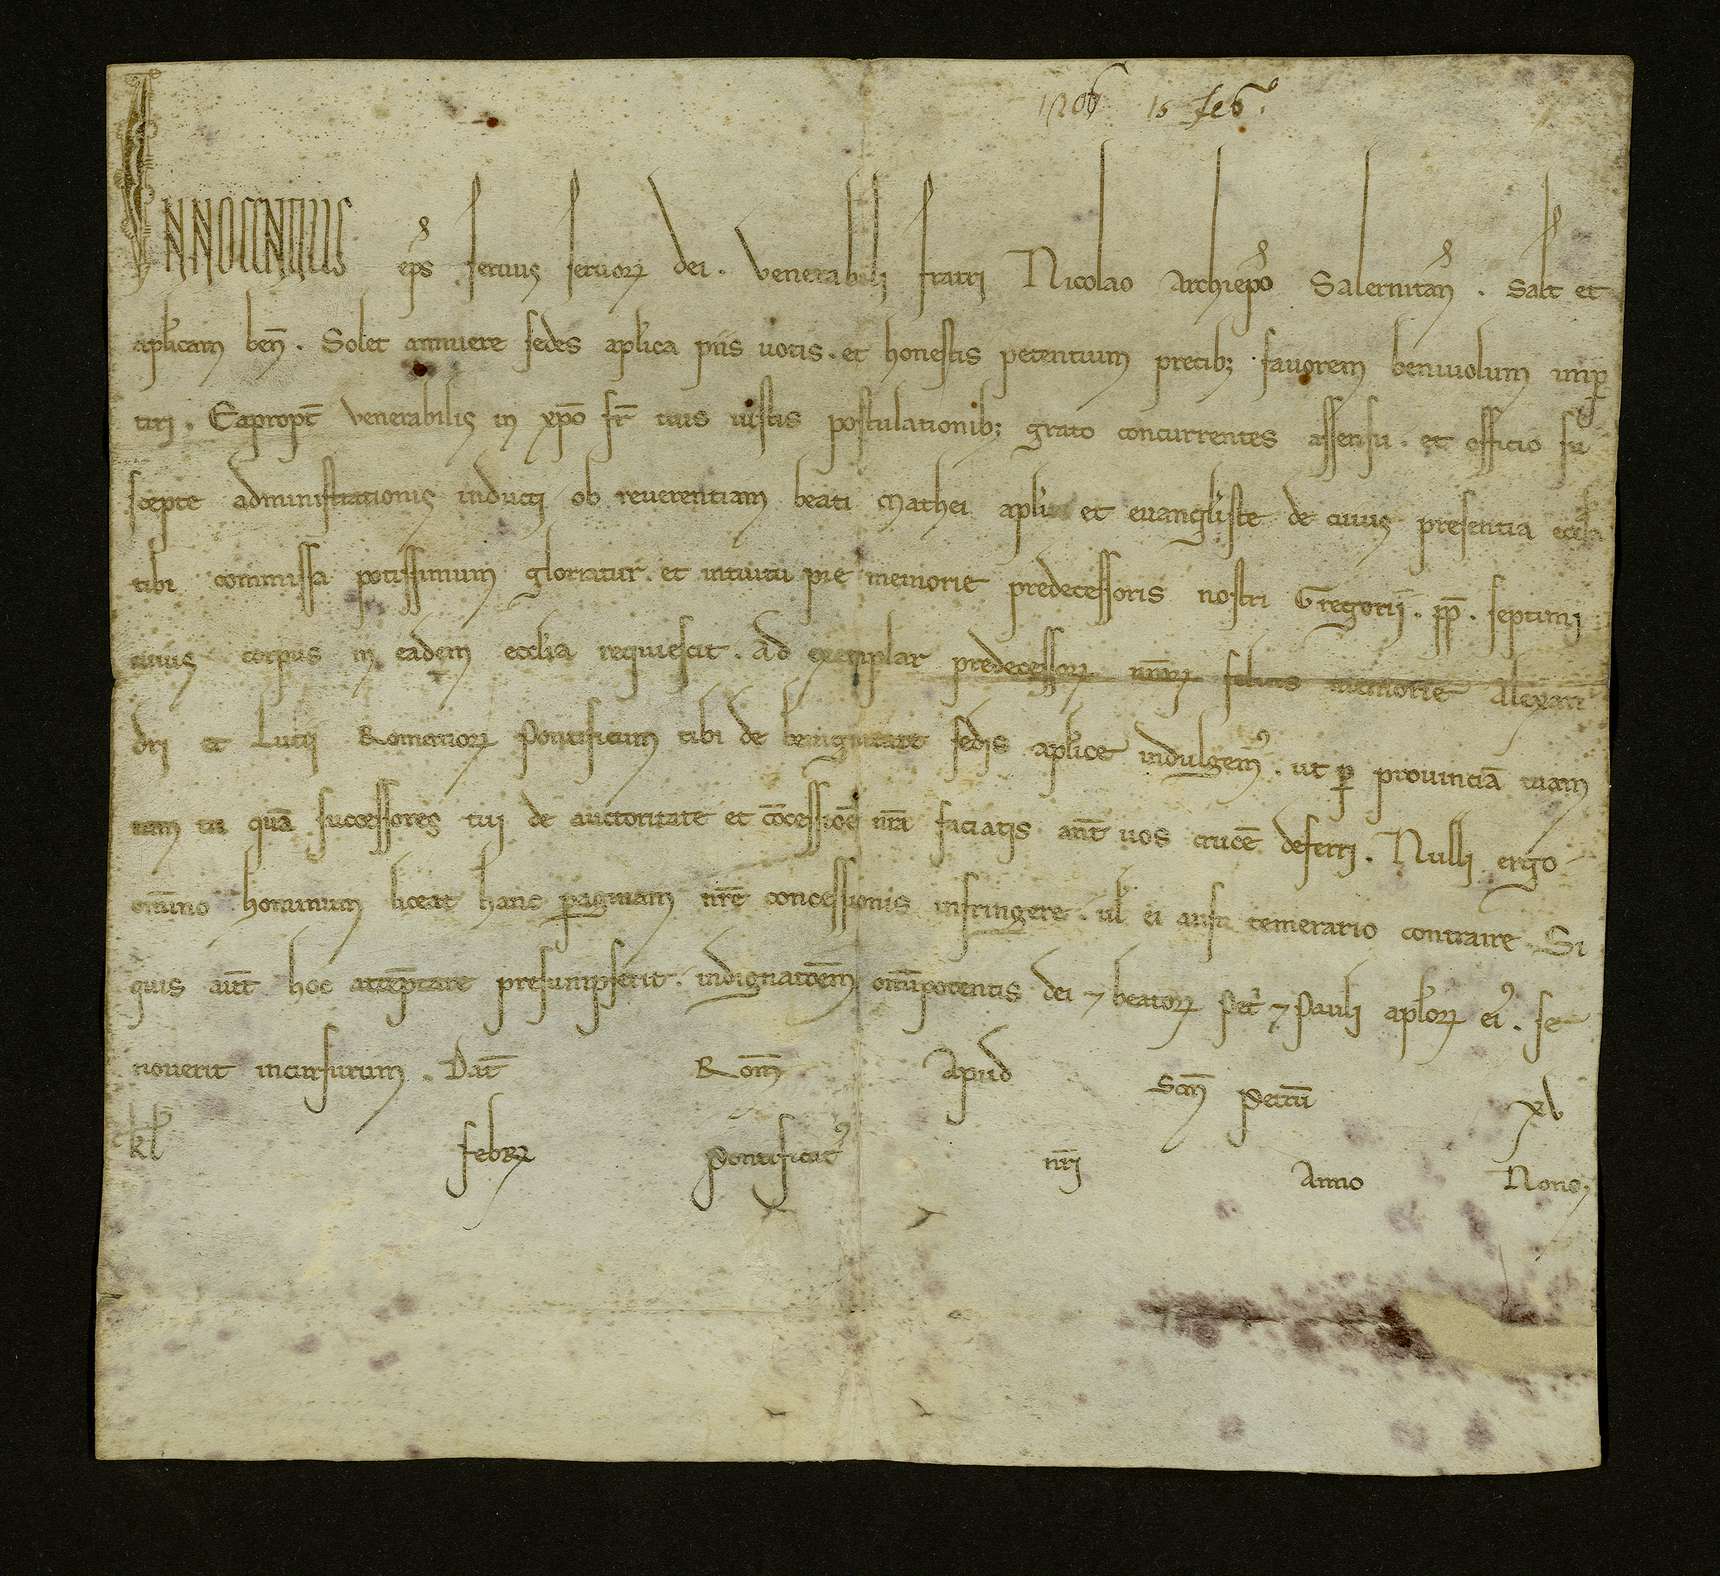 1206 15 feb.
INNOCENTIUS ep̄s seruus seruoꝝ dei. Venerabili fratri Nicolao Archiep̄o Salernitan̄. Salt̄ et
apl̄icam ben̄. Solet annuere sedes apl̄ica piis uotis. et honestis petentium precib; fauorem beniuolum imꝑ
tiri. Eapropt̄ venerabilis in xp̄o fr̄ tuis iustis postulationib; grato concurrentes assensu. et officio su
scepte administrationis inducti ob reuerentiam beati Mathei apl̄i et euangl̄iste de cuius presentia eccl̄a
tibi commissa potissimum gloriatur. et intuitu pie memorie predecessoris nostri Gregorii. pp̄. septimi
cuius corpus in eadem eccl̄ia requiescit. Ad exemplar predecessoꝝ nr̄oꝝ felicis memorie Alexan
dri et Lucii Romanoꝝ Pontificum tibi de benignitate sedis apl̄ice indulgemꝰ. ut ꝑ prouinciā tuam
tam tu quā successores tui de auctoritate et cōcessiōe nr̄a faciatis ant̄ uos crucē deferri. Nulli ergo
om̄ino hominum liceat hanc paginam nr̄e concessionis infringere. ul̄ ei ausu temerario contraire. Si
quis aut̄ hoc attēptare presumpserit. indignatōem om̄ipotentis dei ⁊ beatoꝝ Pet̄ ⁊ Pauli apl̄oꝝ eiꝰ. se
nouerit incursurum. Dat̄ Rom̄ Apud Scm̄ Petrū xv
kl̄ febꝝ Pontificatꝰ nr̄i Anno Nono.